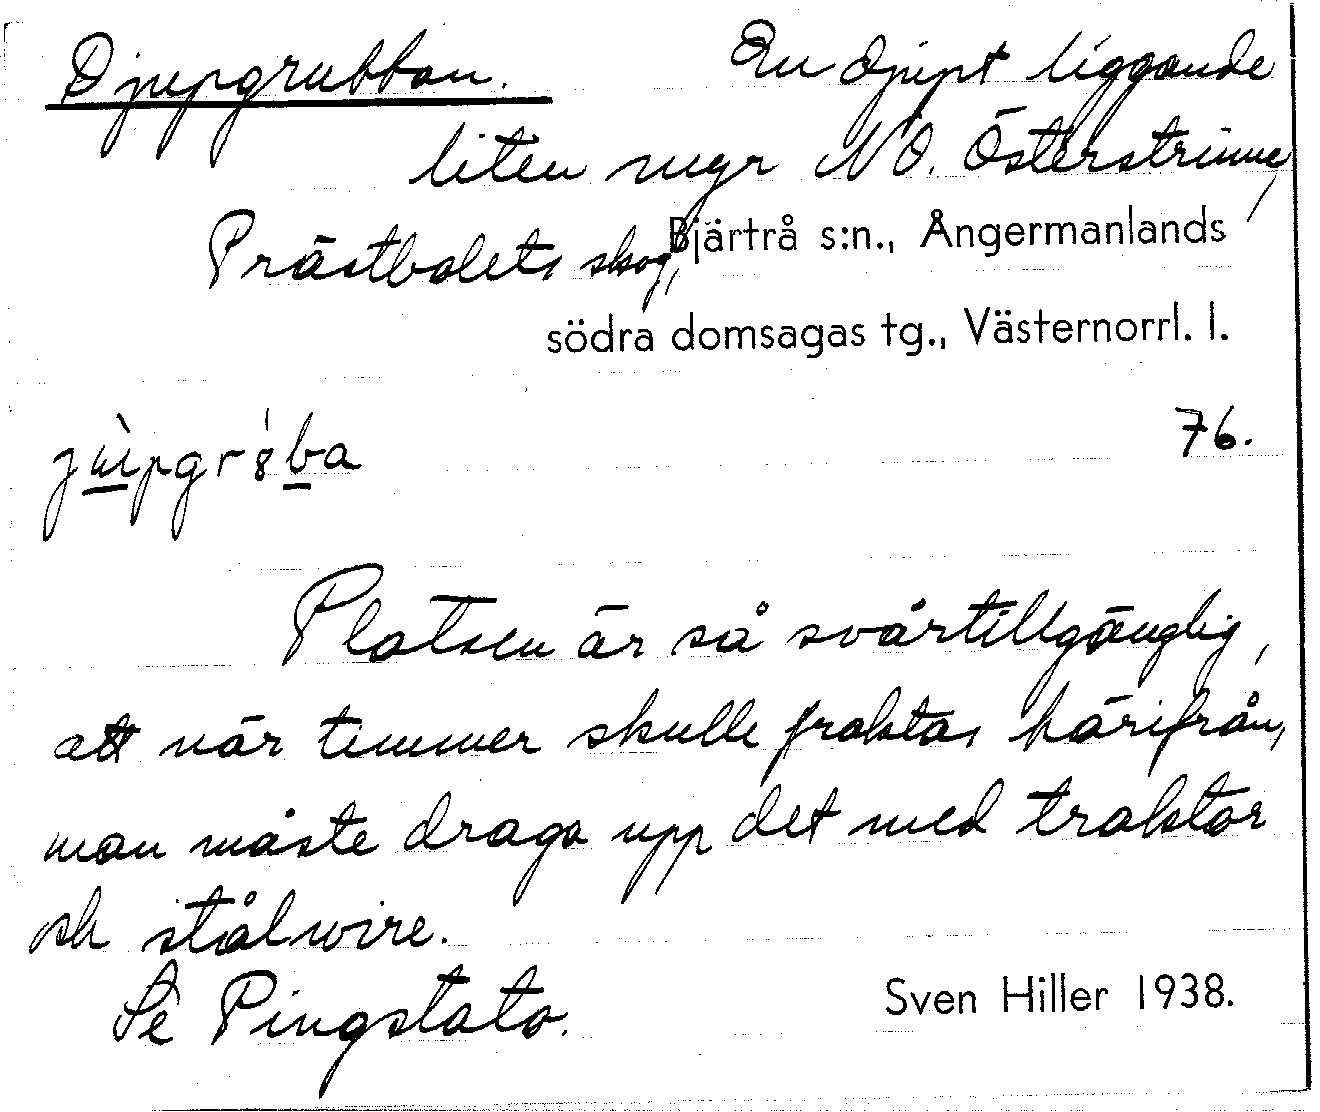 Djupgrubban. En djupt liggande
liten myr NO. Österstrinne,
Prästbolets skog, Bjärtrå s:n., Ångermanlands
södra domsagas tg., Västernorrl. l.
76.
Platsen är så svårtillgänglig,
att när timmer skulle fraktas härifrån,
man måste draga upp det med traktor
och stålwire.
Se Pingstato.
Sven Hiller 1938.